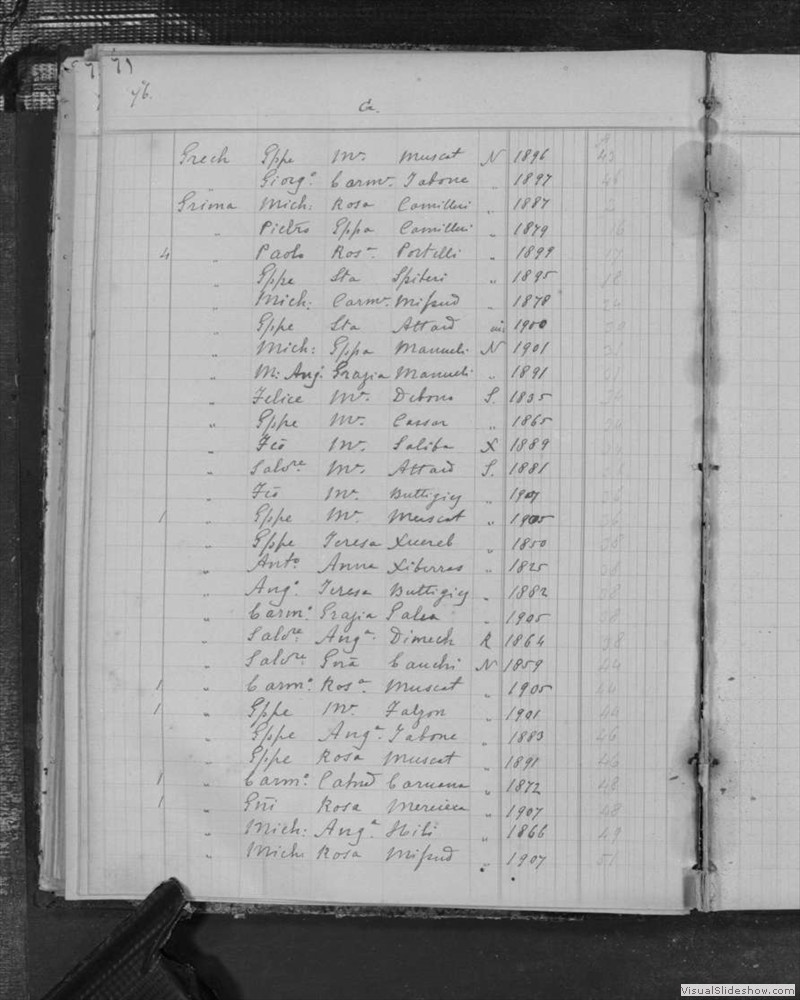 71
76.
G.
Grech Gppe Mª Muscat N 1896 43
" Giorgº Carmª Tabone " 1897 46
Grima Mich: Rosa Camilleri " 1887
" Pietro Gppa Camilleri " 1879
4 " Paolo Rosª Portelli " 1899
" Gppe Sta Spiteri " 1895 18
" Mich: Carmª Mifsud " 1878 24
" Gppe Sta Attard 1900
" Mich: Gppa Manueli N 1901
" M: Angº Grazia Manueli " 1891
" Felice Mª Debono S. 1835
" Gppe Mª Cassar " 1865
" Fcō Mª Saliba X 1889
" Salvre Mª Attard S. 1881
" Fcō Mª Buttigieg " 1907
1 " Gppe Mª Muscat " 1905
" Gppe Teresa Xuereb " 1850 38
" Antº Anna Xiberras " 1825 38
" Angº Teresa Buttigieg " 1882 38
" Carmº Grazia Galea " 1905 38
" Salvre Angª Dimech R 1864 38
" Salvre Gnā Cauchi N 1859 44
1 " Carmº Rosª Muscat " 1905 44
1 " Gppe Mª Falzon " 1901 44
" Gppe Angª Tabone " 1883 46
" Gppe Rosa Muscat " 1891 46
1 " Carmº Catnd Caruana " 1872 48
1 " Gñi Rosa Mercieca " 1907 48
" Mich: Angª Hili " 1866 49
" Mich: Rosa Mifsud " 1907 51
VisualSlideshow.com